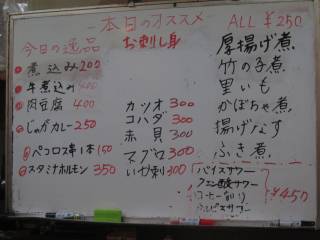 本日のオススメ
今日の逸品
煮込み200
牛煮込み400
肉豆腐 400
じゃがカレー250
ペコロス串1本150
スタミナホルモン 350
お刺し身
カツオ300
コハダ 300
赤貝 300
マグロ300
いか刺300
ALL ¥250
厚揚げ煮
竹の子煮
里いも
かぼちゃ煮
揚げなす
ふき煮
バイスサワー
クエン酸サワー
コーヒー割り
カルピスサワー
¥450